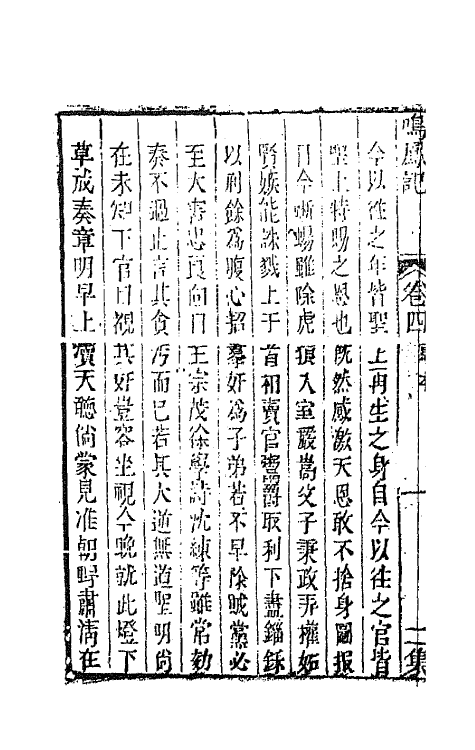 鳴鳳記 卷四 二集
今以往之年皆聖上再生之身自今以往之官皆
聖上特賜之恩也既然感激天恩敢不捨身圖報
目今蜥蜴雖除虎狼入室嚴嵩父子秉政弄權妬
賢嫉能誅戮上于首相賣官鬻爵取利下盡錙銖
以剥餘為腹心招羣奸為子弟若不早除賊黨必
至大害忠良向日王宗茂徐學詩沈練等雖常劾
奏不過止言其貪汚而已若其大逆無道聖明尚
在未知下官目覩其奸豈容坐視今晚就此燈下
草成奏章明早上瀆天聽倘蒙見准朝野肅清在